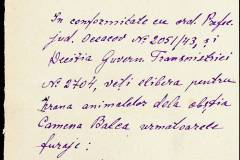 In conformitate cu ord. Prefec.
jud. Oceacov № 2051/43, și
Decizia Guvern. Transnistriei
№ 2704, veți elibera pentru
hrana animalelor dela obștia
Camena Balca urmatoarele
furaje: